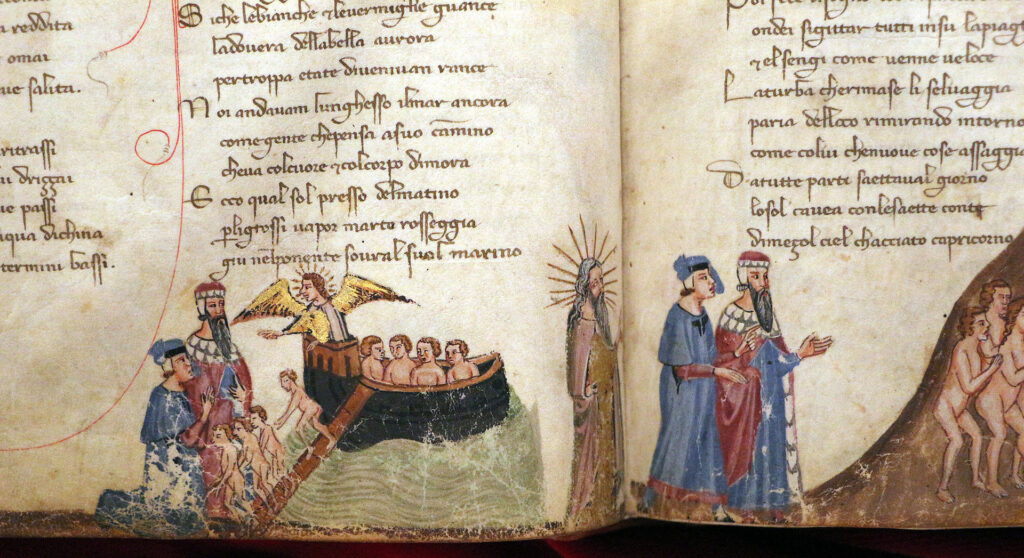 reddita
omai
salita.
ritrassi
drizzai
passi
dichina
termini bassi.
Siche lebianche & leuermiglie guance
ladouera dellabella aurora
pertroppa etate diueniuan rance
Noi andauam lunghesso ilmar ancora
come gente chepensa asuo camino
cheua colcuore & colcorpo dimora
Ecco qual sol presso delmatino
pligrossi uapor marte rosseggia
giu nelponente soural suol marino
ondei sigittar tutti insu lapiagg
& el sengi come uenne ueloce
Laturba cherimase si seluaggia
paria delloco rimirando intorno
come colui chenuoue cose assaggia
Datutte parti saettaual giorno
losol cauea conlesaette conte
dimezol ciel chacciato capricorno